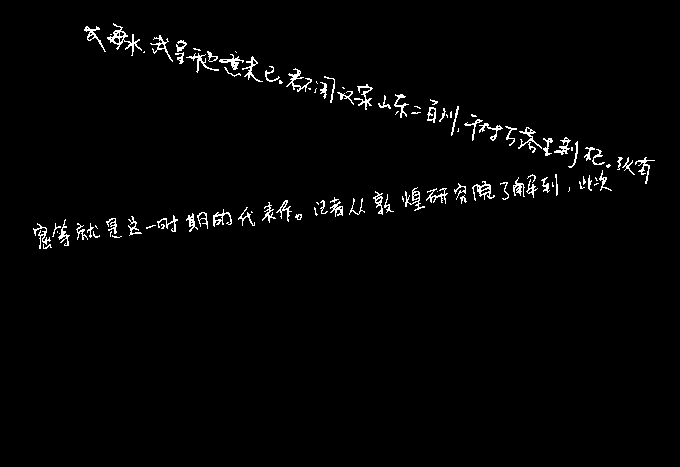 成海水,武皇开边意未已。君不闻汉家山东二百州,千村万落生荆杞。纵有
窟等就是这一时期的代表作。记者从敦煌研究院了解到,此次